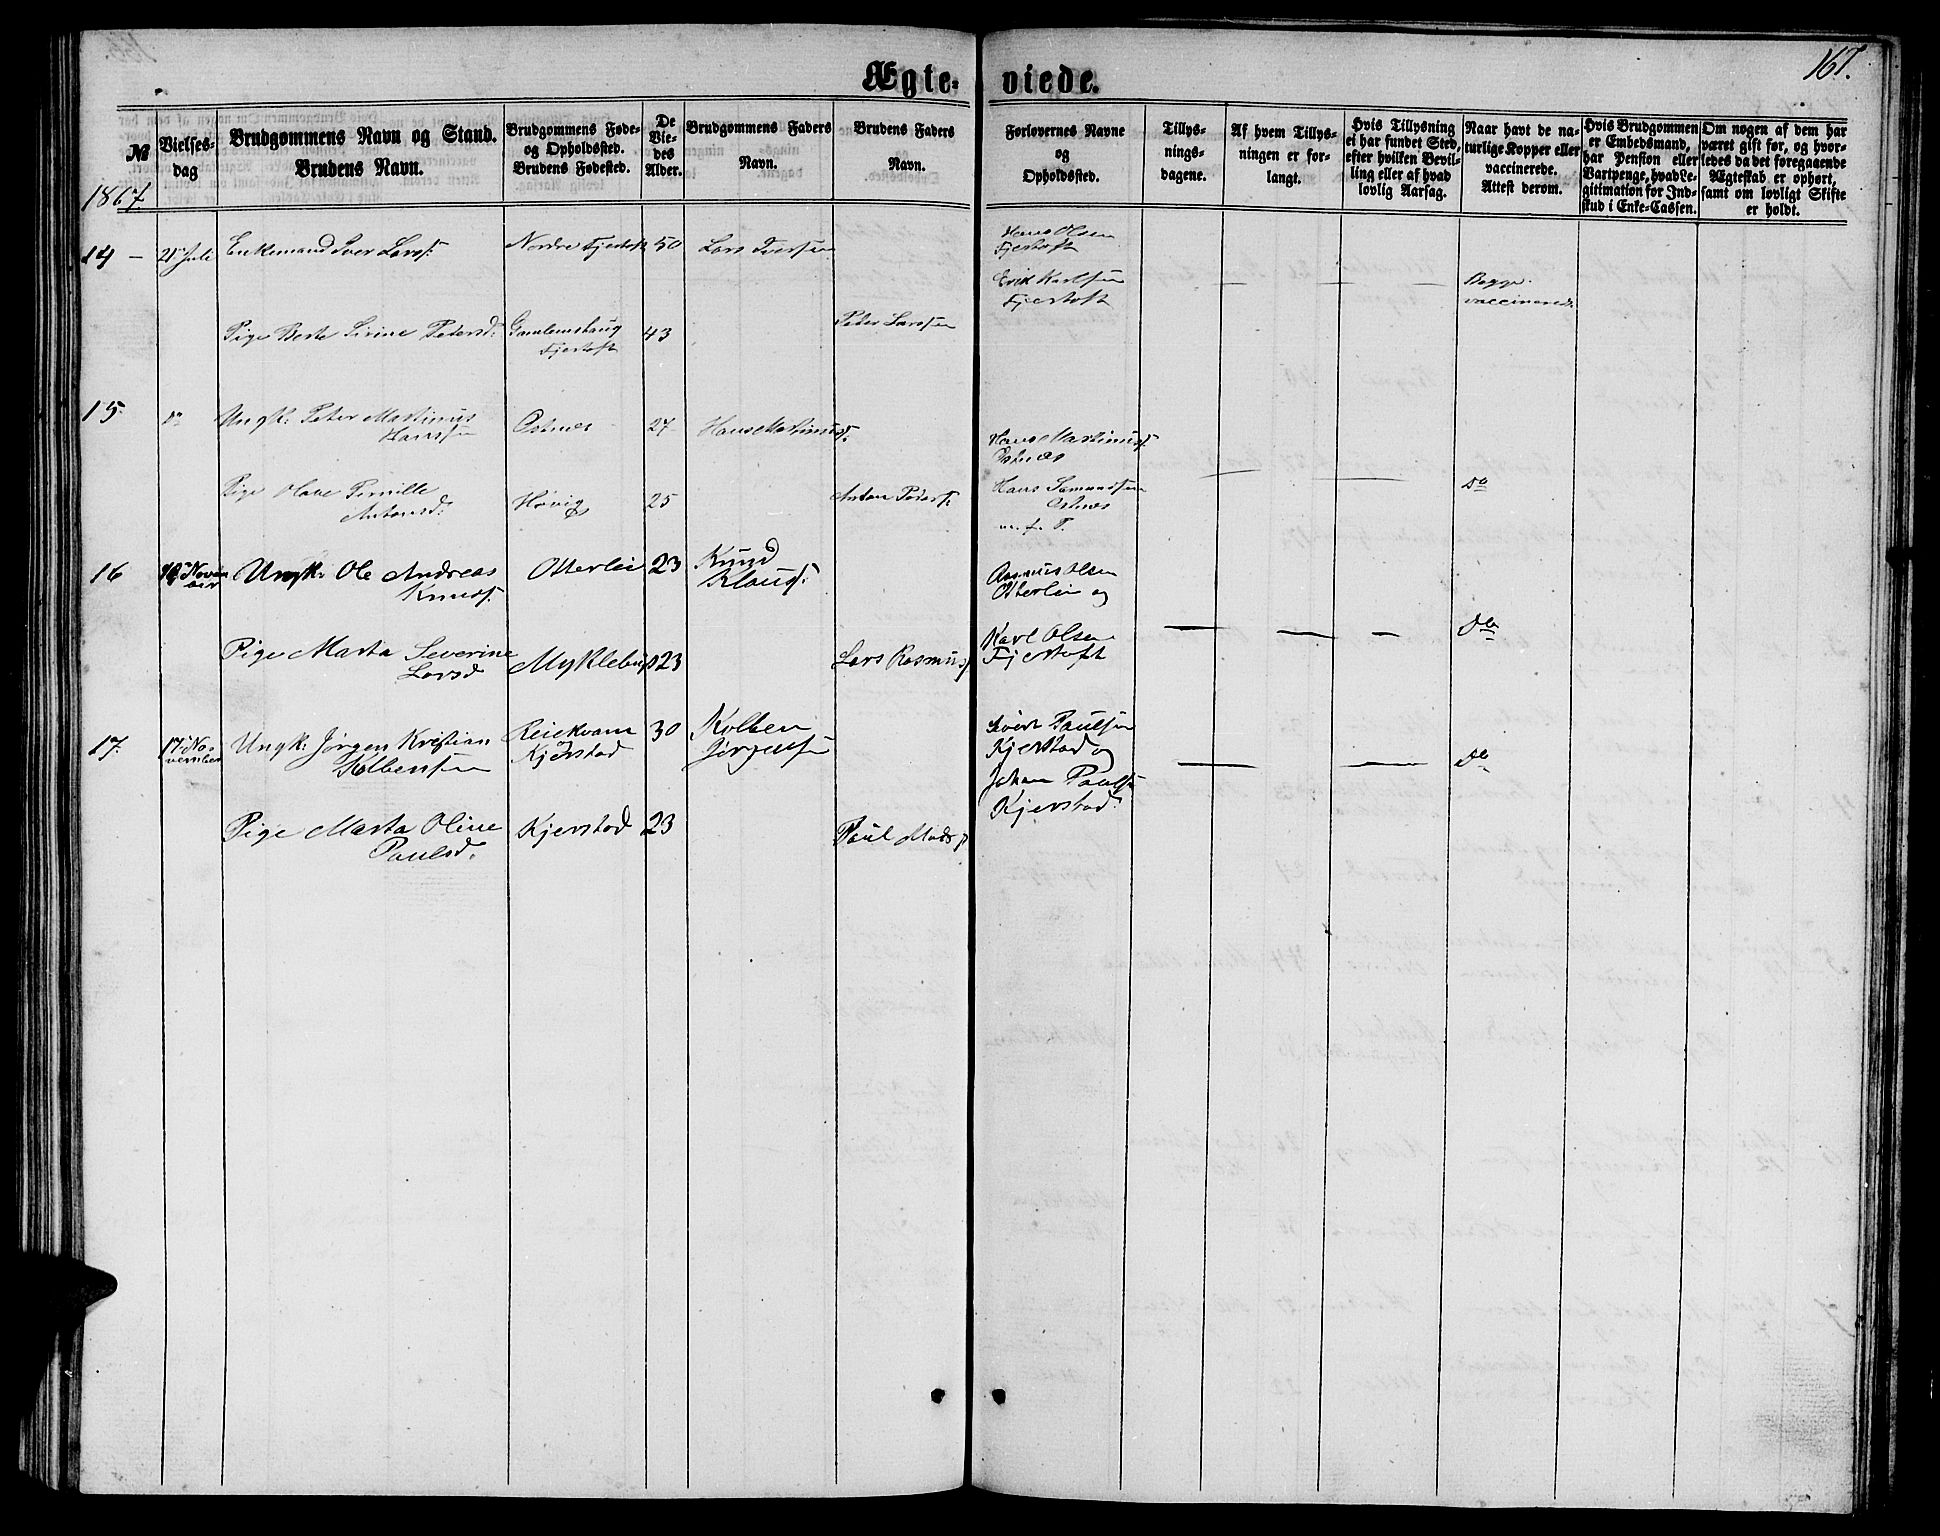 167.
Ægte- viede.
№
Vielses-
dag
Brudgommens Navn og Stand.
Brudens Navn.
Brudgommens Føde-
og Opholdssted.
Brudens Fødested.
De
Vie-
des
Alder.
Brudgommens Faders
Navn.
Brudens Faders
Navn.
Forlovernes Navne
og
Opholdssted.
Tillys-
nings-
dagene.
Af hvem Tillys-
ningen er for-
langt.
Hvis Tillysning
ei har fundet Sted,
efter hvilken Bevil-
ling eller af hvad
lovlig Aarsag.
Naar havt de na-
turlige Kopper eller
vaccinerede.
Attest derom.
Hvis Brudgommen
er Embedsmand,
har Pension eller
Vartpenge, hvad Le-
gitimation for Ind-
skud i Enke-Cassen.
Om nogen af dem har
været gift før, og hvor-
ledes da det foregaaende
Ægteskab er ophørt,
samt om lovligt Skifte
er holdt.
1867
14 — 21de Juli Enkemand Iver Larss: Nordre Fjertoft 50 Lars Iversen
Hans Olsen
Fjertoft
Erik Karlsen
Fjertoft
— — — Begge
vaccinerede.
Pige Berte Sirine Petersd: Gamlemshaug
Fjertoft
43 Peter Larssen
15. do Ungk: Peter Martinus
Hanssen
Østnes 27 Hans Martinuss:
Hans Martinuss:
Østnes
Pige Olave Pernille
Antonsd:
Høvig 25 Anton Peders:
Hans Samuelsen
Østnes
m. f. P.
— — do
16 10de Novem
ber
Ungk: Ole Andreas
Knuds:
Otterlei 23 Knud
Klauss:
Rasmus Olsen
Otterlei og
Karl Olsen
Fjertoft
— — — do
Pige Marta Severine
Larsd
Myklebust 23 Lars Rasmuss:
17. 17de No-
vember
Ungk: Jørgen Kristian
Kolbensen
Reiekvam
og
Kjerstad
30 Kolben
Jørgensen
Sivert Paulsen
Kjerstad og
Johan Pauls:
Kjerstad.
— — do
Pige Marta Oline
Paulsd.
Kjerstad 23 Paul Mads: